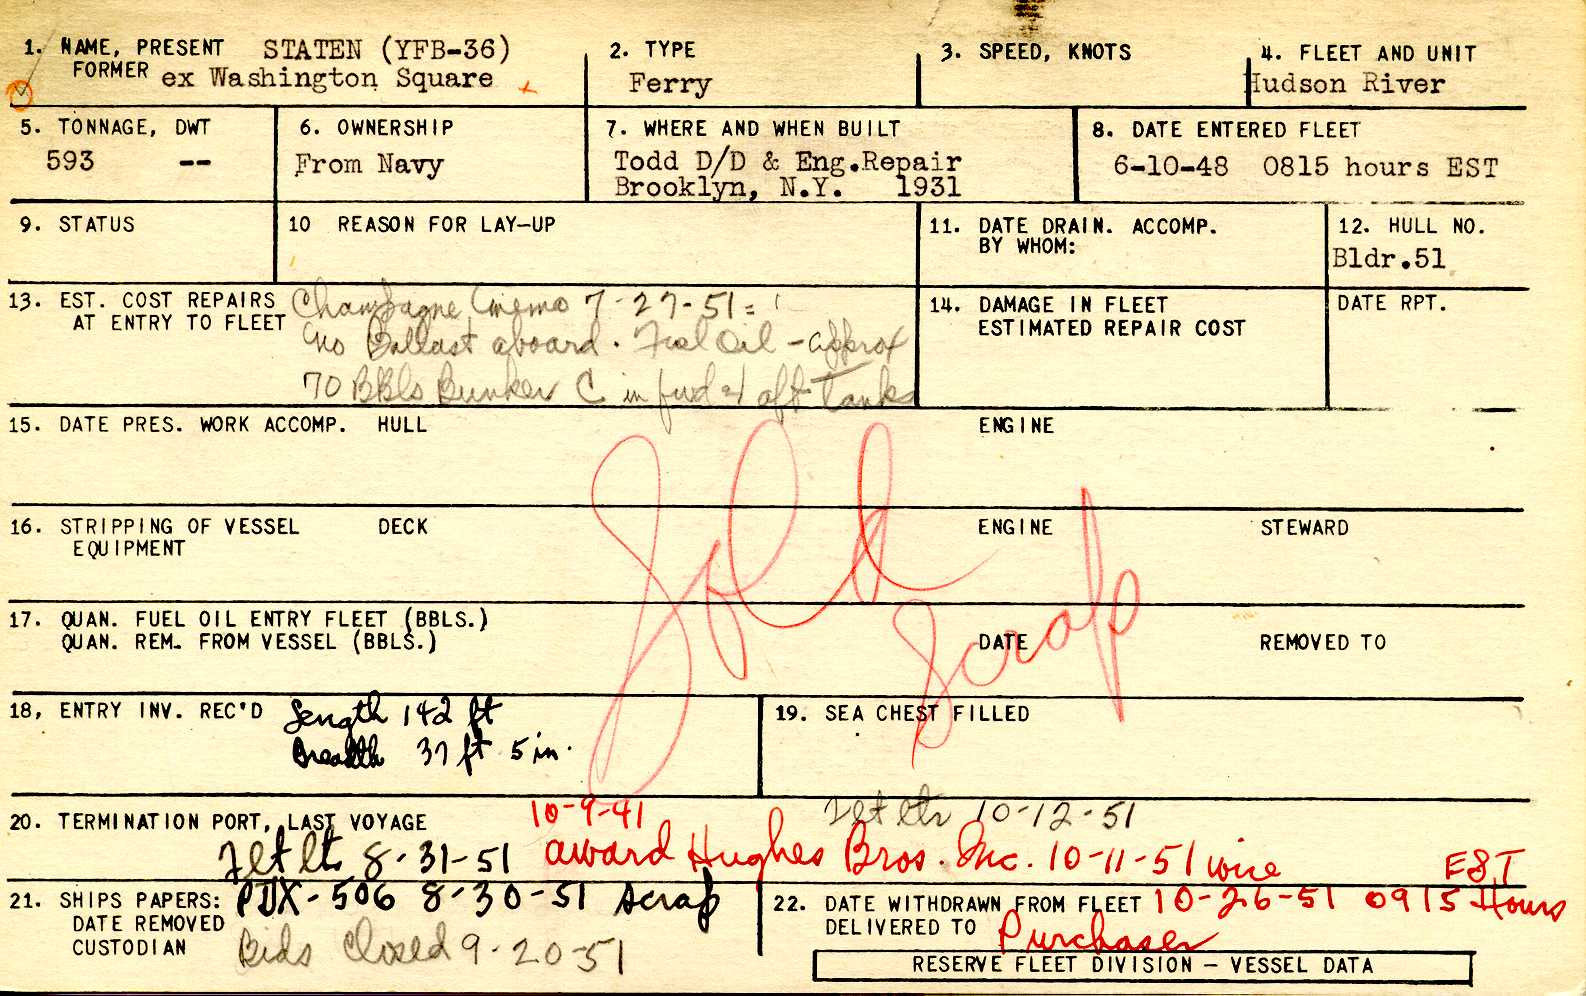 1. NAME, PRESENT STATEN (YFB-36)
FORMER ex Washington Square
2. TYPE
Ferry
3. SPEED, KNOTS
4. FLEET AND UNIT
Hudson River
5. TONNAGE, DWT
593 --
6. OWNERSHIP
From Navy
7. WHERE AND WHEN BUILT
Todd D/D & Eng.Repair
Brooklyn, N.Y. 1931
8. DATE ENTERED FLEET
6-10-48 0815 hours EST
9. STATUS
10 REASON FOR LAY-UP
11. DATE DRAIN. ACCOMP.
BY WHOM:
12. HULL NO.
Bldr.51
13. EST. COST REPAIRS
AT ENTRY TO FLEET
Champagne memo 7-27-51=
no Ballast aboard. Fuel Oil - approx
70 BBls Bunker C in fwd & aft Tanks
14. DAMAGE IN FLEET
ESTIMATED REPAIR COST
DATE RPT.
15. DATE PRES. WORK ACCOMP. HULL
ENGINE
Sold
Scrap
16. STRIPPING OF VESSEL DECK
EQUIPMENT
ENGINE
STEWARD
17. QUAN. FUEL OIL ENTRY FLEET (BBLS.)
QUAN. REM. FROM VESSEL (BBLS.)
DATE
REMOVED TO
18, ENTRY INV. REC'D Length 142 ft
Breadth 37 ft 5 in.
19. SEA CHEST FILLED
20. TERMINATION PORT, LAST VOYAGE
10-9-41
Flt ltr 10-12-51
Flt lt 8-31-51 award Hughes Bros. Inc. 10-11-51 wire
EST
21. SHIPS PAPERS: PDX-506 8-30-51 scrap
DATE REMOVED
CUSTODIAN
Bids Closed 9-20-51
22. DATE WITHDRAWN FROM FLEET 10-26-51 0915 Hours
DELIVERED TO Purchaser
RESERVE FLEET DIVISION - VESSEL DATA